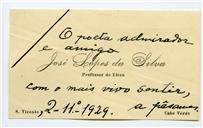 O poeta admirador
e amigo
José Lopes da Silva
Professor do Liceu
com o mais vivo sentir,
a pêsames.
S. Vicente, 2-11º-1929.
Cabo Verde